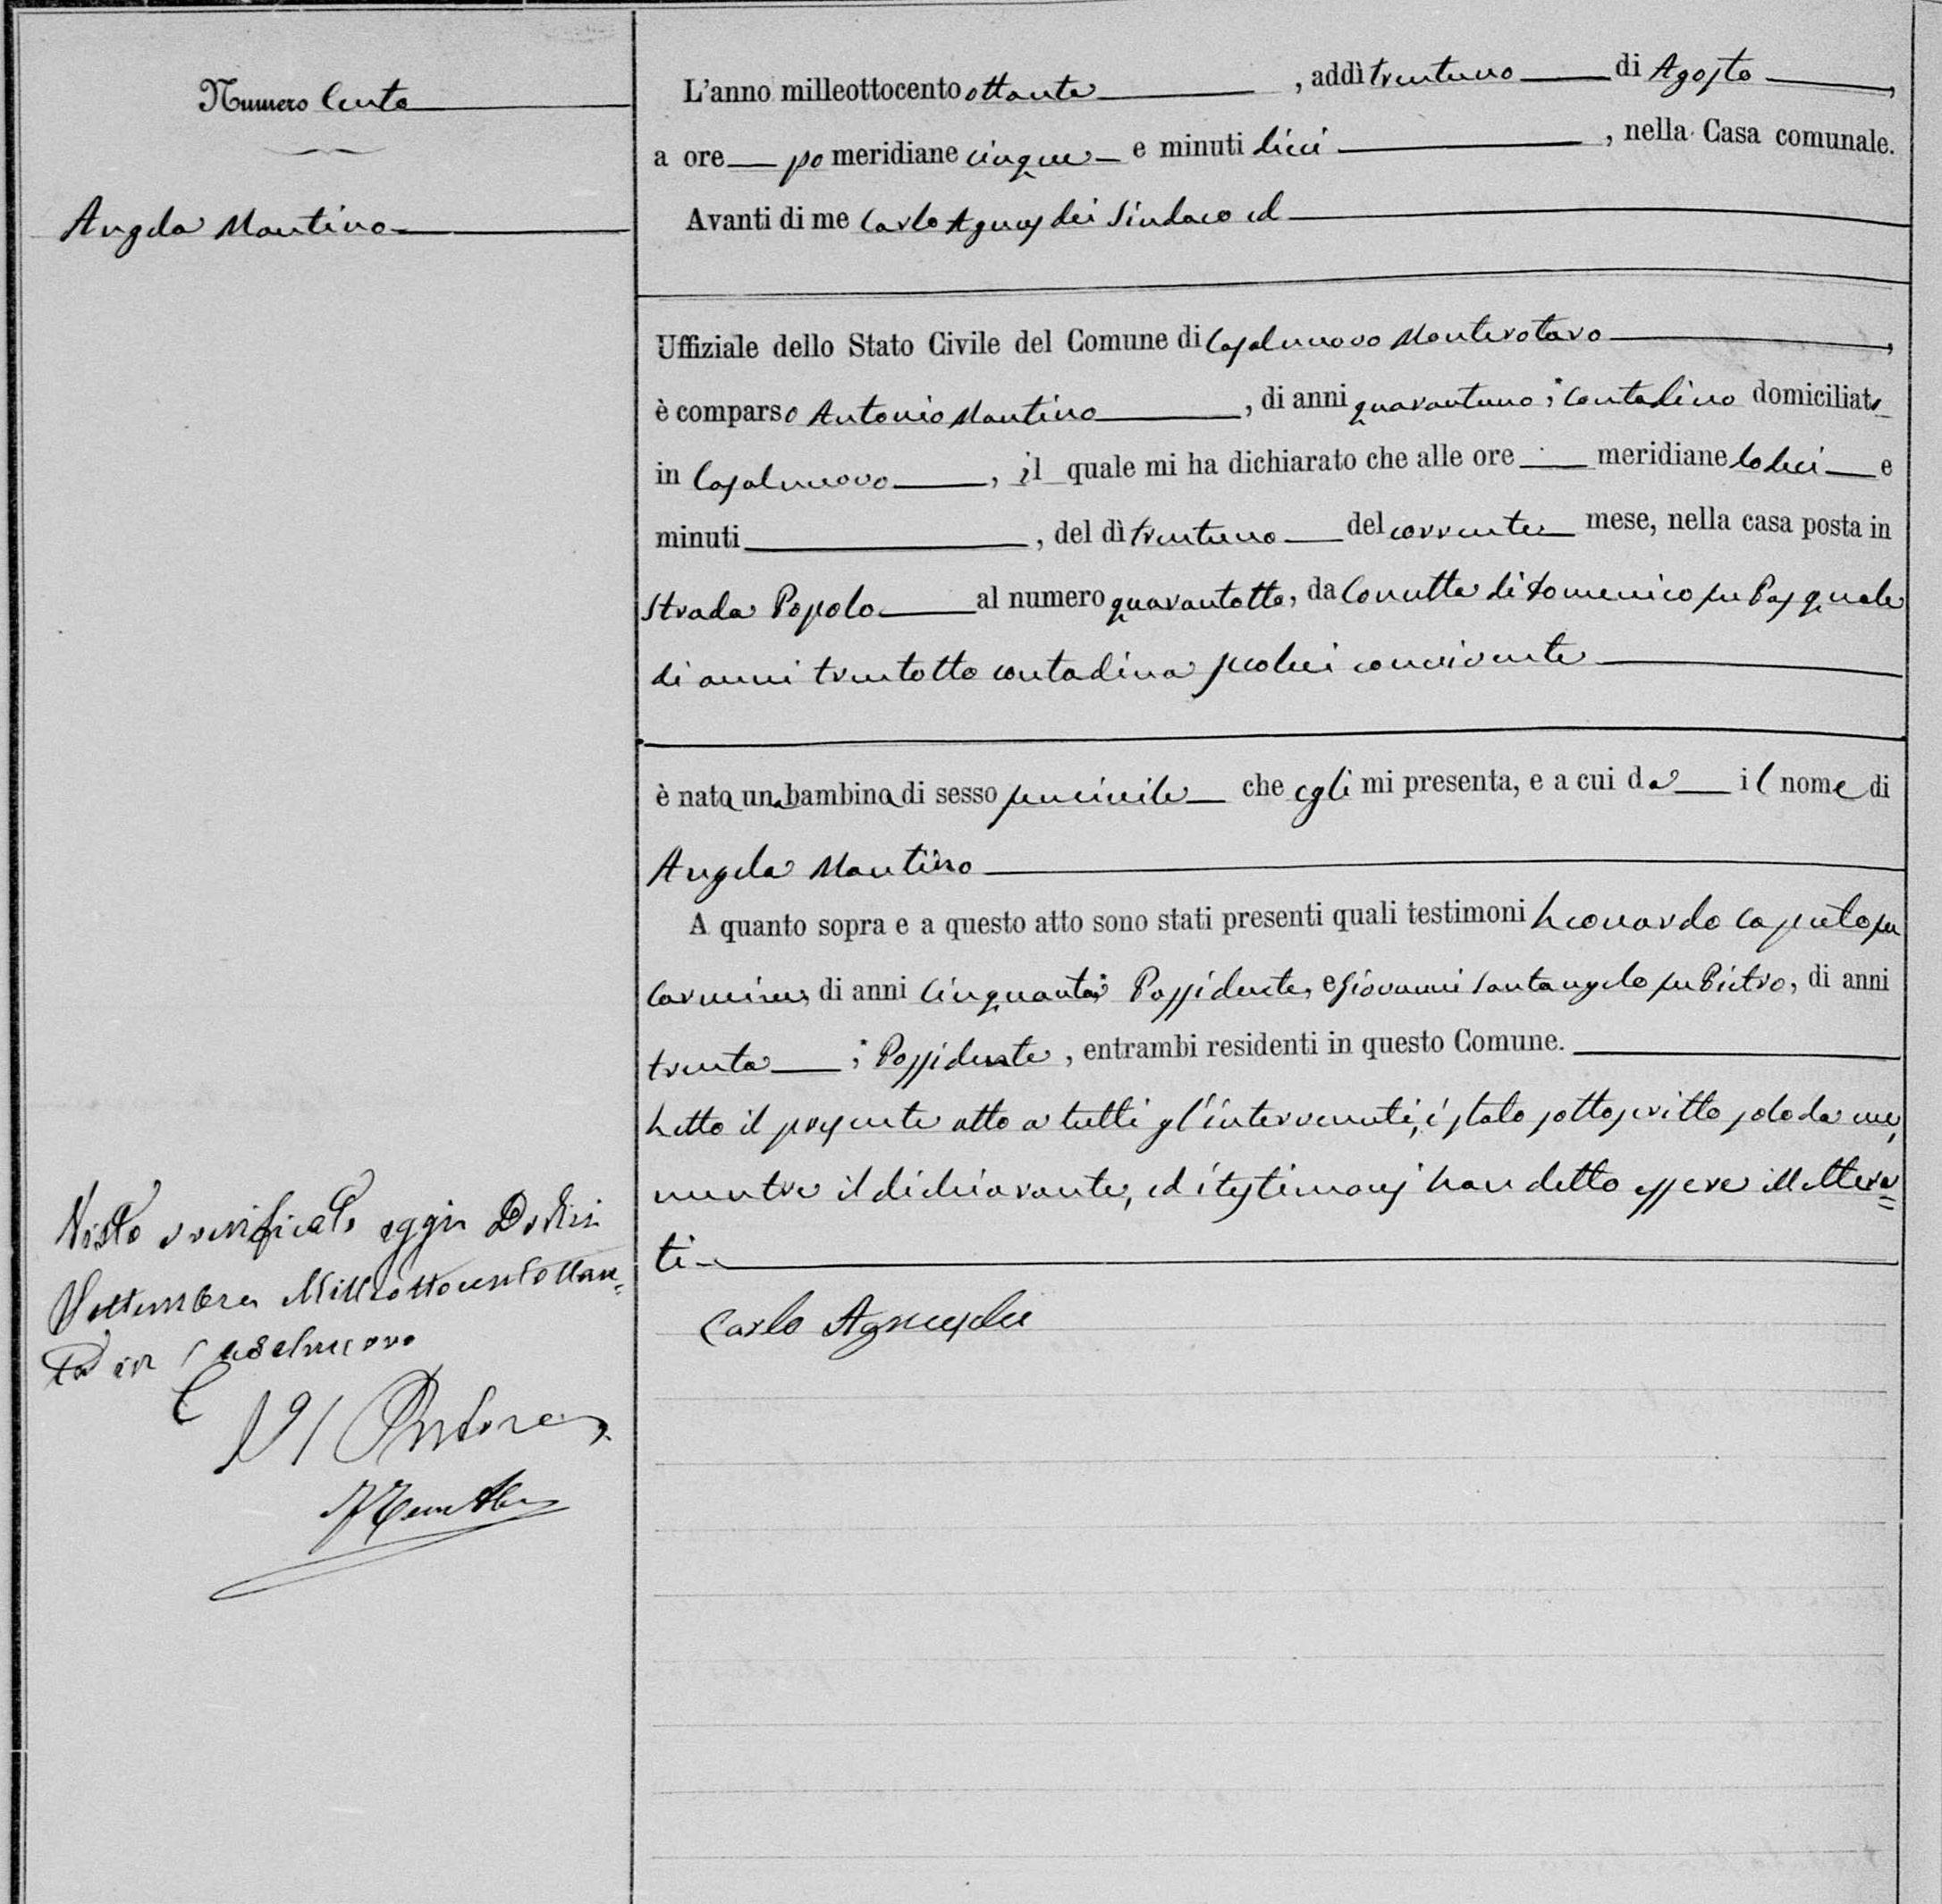 Numero Cento
Angela Mantino
L'anno milleottocento ottanta , addì trentuno di Agosto ,
a ore po meridiane cinque e minuti dieci , nella Casa comunale.
Avanti di me Carlo Agnusdei Sindaco ed
Uffiziale dello Stato Civile del Comune di Casalnuovo Monterotaro ,
è comparso Antonio Mantino , di anni quarantuno ; contadino domiciliato
in Casalnuovo , il quale mi ha dichiarato che alle ore meridiane dodici e
minuti , del dì trentuno del corrente mese, nella casa posta in
Strada Popolo al numero quarantotto, da Conutta di Domenico fu Pasquale
di anni trentotto contadina seco lui convivente
è nata una bambina di sesso feminile che egli mi presenta, e a cui da il nome di
Angela Mantino
A quanto sopra e a questo atto sono stati presenti quali testimoni Leonardo Caputo fu
Carmine, di anni cinquanta; Possidente, e Giovanni Santangelo fu Pietro, di anni
trenta ; Possidente , entrambi residenti in questo Comune.
Letto il presente atto a tutti gl'intervenuti, è stato sottoscritto solo da me,
mentre il dichiarante, ed i testimonj han detto essere illettera=
ti
Carlo Agnusdei
Visto e verificato oggi Dodici
Settembre Milleottocentottan=
ta in Casalnuovo
Il Pretore